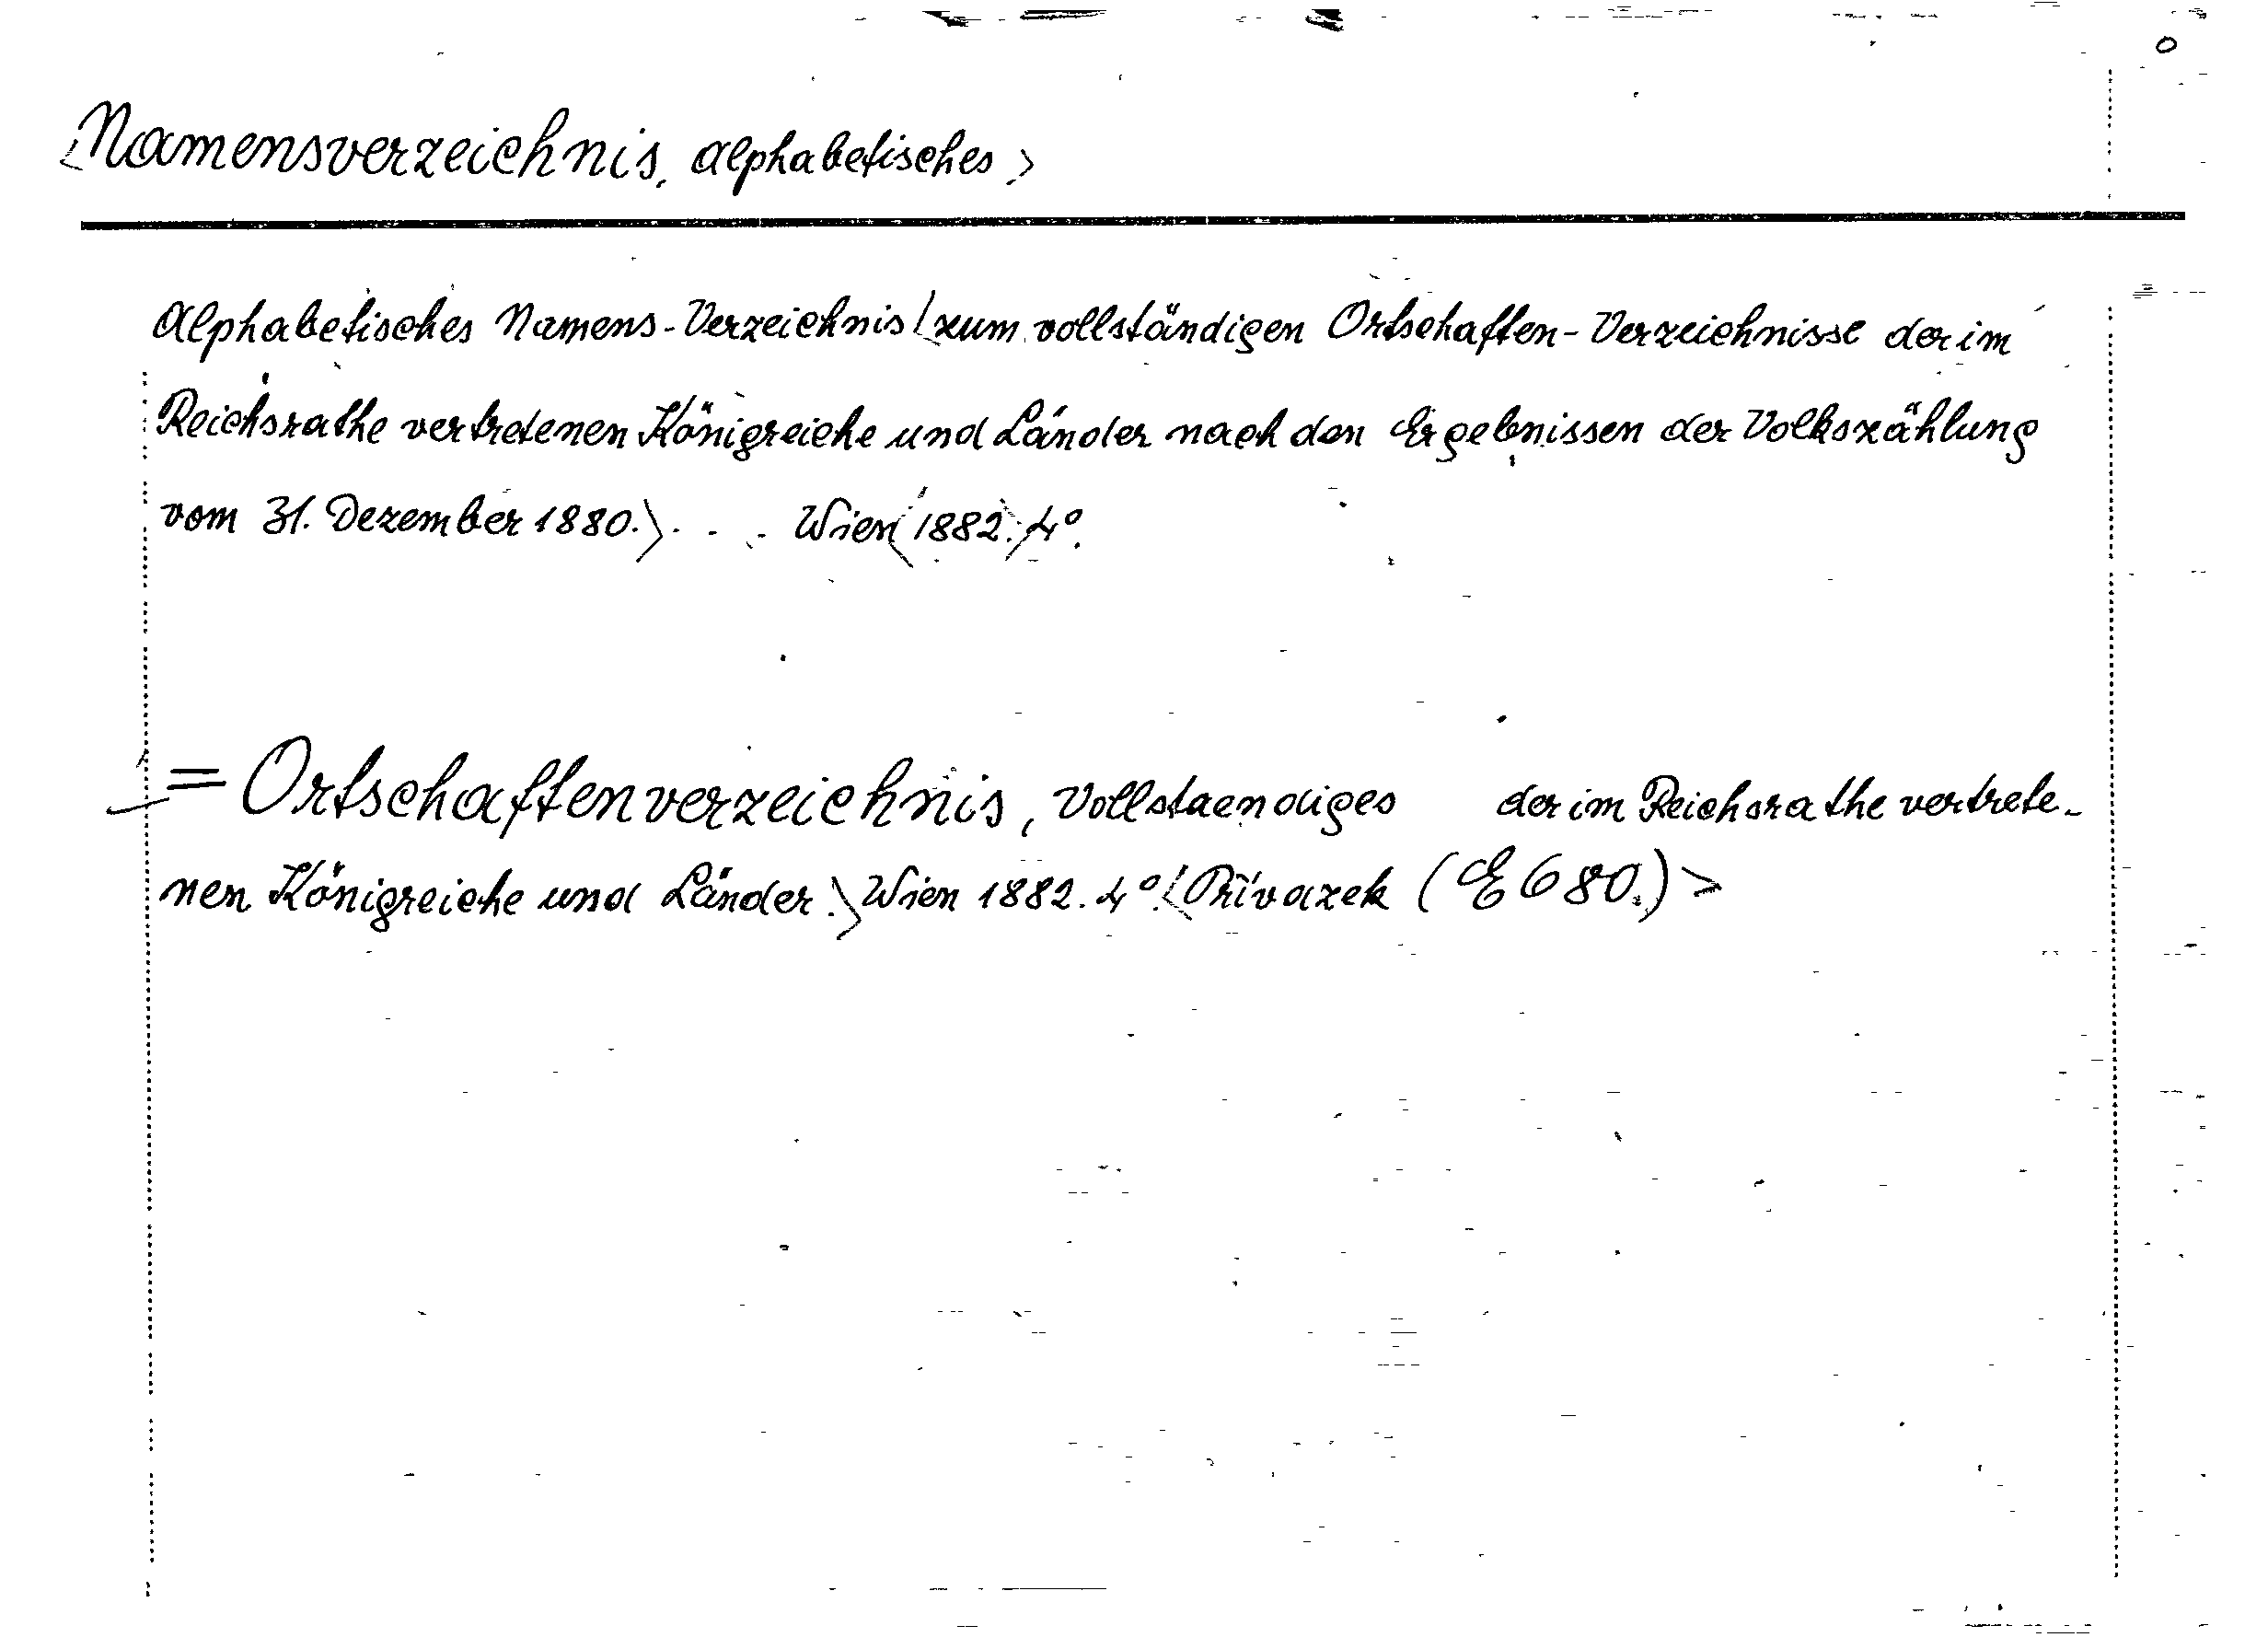 <Namensverzeichnis, alphabetisches.>
Alphabetisches Namens-Verzeichnis <zum vollständigen Ortschaften-Verzeichnisse der im
Reichsrathe vertretenen Königreiche und Länder nach den Ergebnissen der Volkszählung
vom 31. Dezember 1880.> . . . Wien <1882.> 4º.
= Ortschaftenverzeichnis, Vollstaendiges der im Reichsrathe vertrete-
nen Königreiche und Länder.> Wien 1882. 4º. <Přívazek (E 680.)>